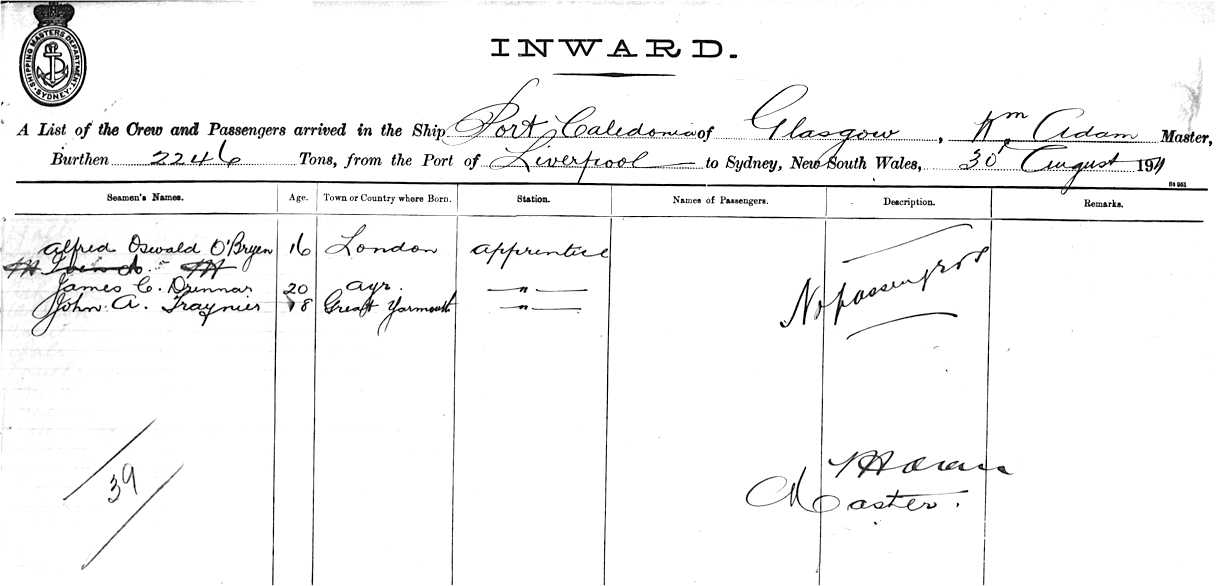 SHIPPING MASTERS DEPARTMENT SYDNEY
INWARD.
A List of the Crew and Passengers arrived in the Ship Port Caledonia of Glasgow, Wm Adam Master,
Burthen 2246 Tons, from the Port of Liverpool to Sydney, New South Wales, 30 August 1911
Seamen's Names. Age. Town or Country where Born. Station. Names of Passengers. Description. Remarks.
Alfred Oswald O'Bryen 16 London apprentice
James C. Drennan 20 ayr. — " —
John A. Traynier 18 Great Yarmouth — " —
No passengers
39
Master.